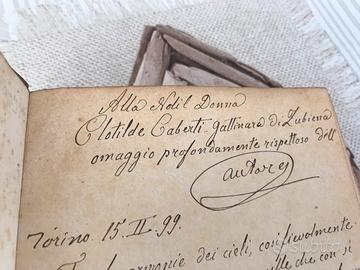 Alla Nobil Donna
Clotilde Caberti-Gattinara di Zubiena
omaggio profondamente rispettoso dell'
autore
Torino 15.II.99.
armonie dei cieli,
che con si
subito